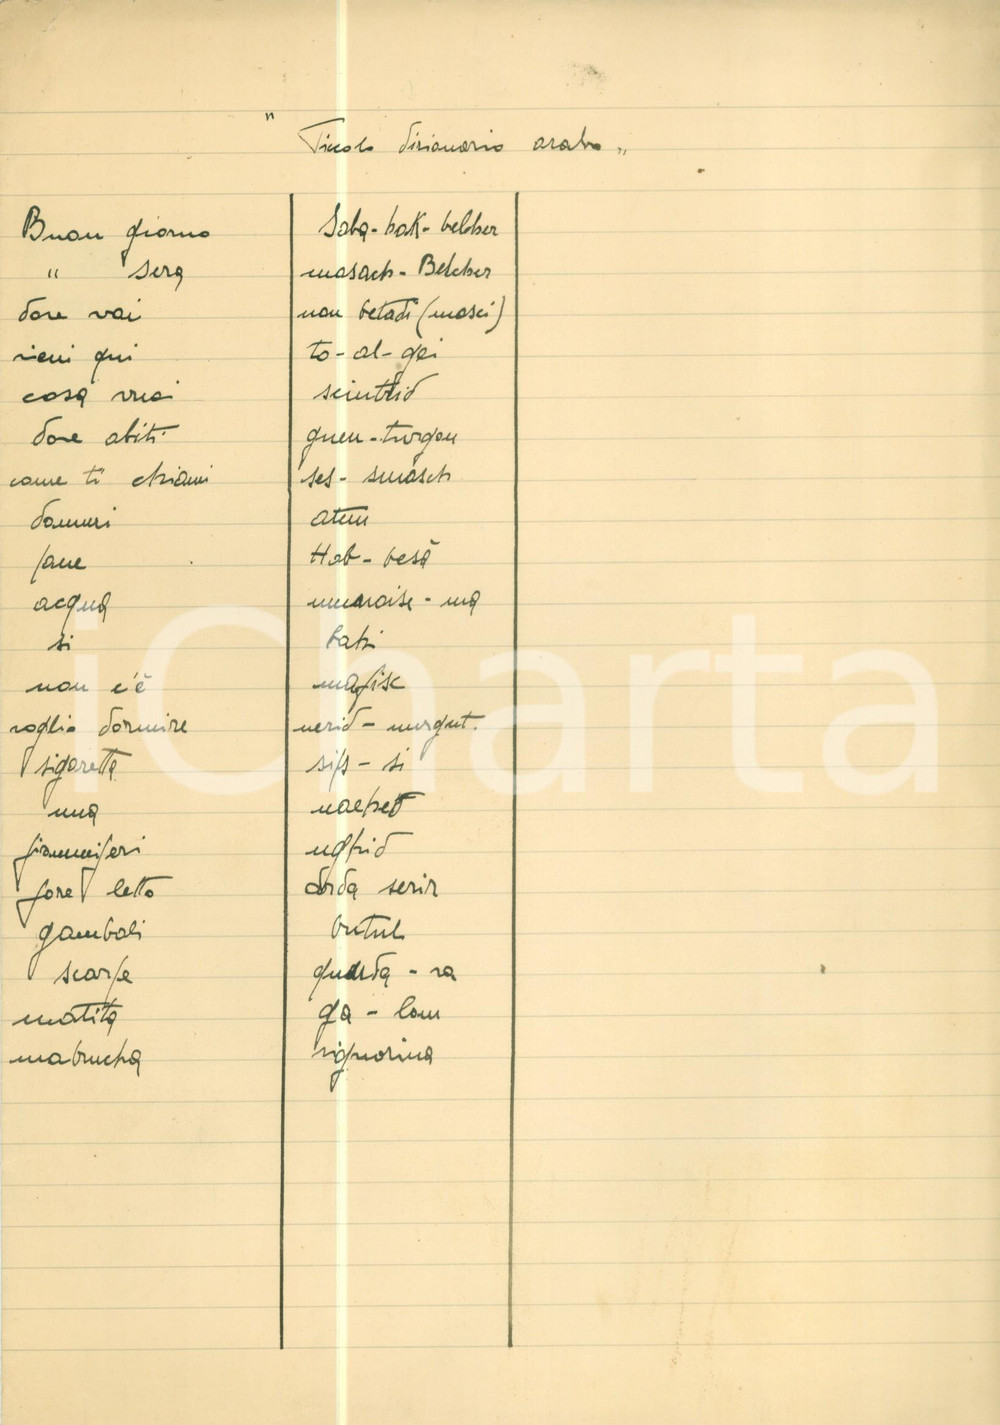 " Piccolo dizionario arabo "
Buon giorno Saba-hak-belcher
" sera masach-Belcher
dove vai non betadi (masci)
vieni qui to-al-gei
cosa vuoi scintrid
dove abiti guen-turgou
come ti chiami ses-smasch
dammi atini
pane Hob-besà
acqua -ma
si bahi
non c'è mafisc
voglio dormire nerid-nurgut.
sigaretta sips-si
una
fiammiferi ughid
fare letto adda serir
gambali butul
scarpe -ra
matita ga-lam
mabrucha signorina
iCharta